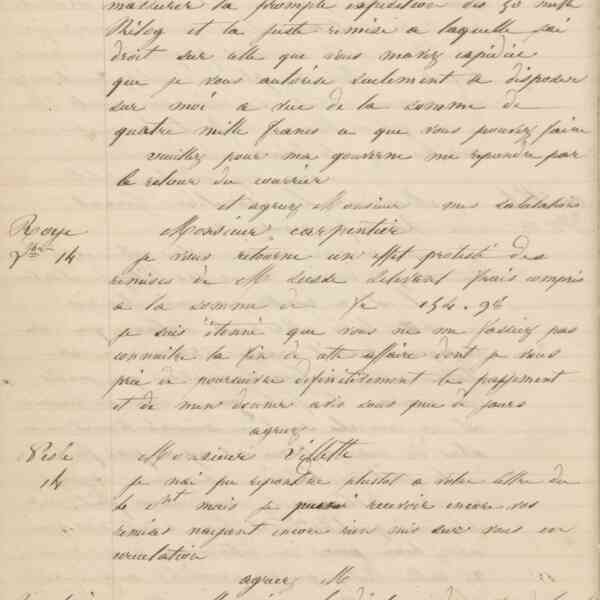 massurer la prompte expedition des 50 mille
Kilog et la juste remise a laquelle jai
droit sur celle que vous mavez expédiée
que je vous autorise seulement a disposer
sur moi a vue de la somme de
quatre mille francs a que vous pouvez faire
veuillez pour ma gouverne me repondre par
le retour du courrier
et agreez Monsieur mes salutations
Roye Monsieur carpentier
14 je vous retourne un effet protesté des
remises de M delivrant frais compris
a la somme de fr 154.98
je suis étonné que vous ne me fassiez pas
connaitre la fin de cette affaire dont je vous
prie de poursuivre definitivement le payement
et de men donner avis sous peu de jours
agreez
Monsieur Villette
14 je nai pu repondre plustot a votre lettre du
4 mais je recevoir encore vos
remises nayant encore rien mis sur vous en
circulation
agreez M